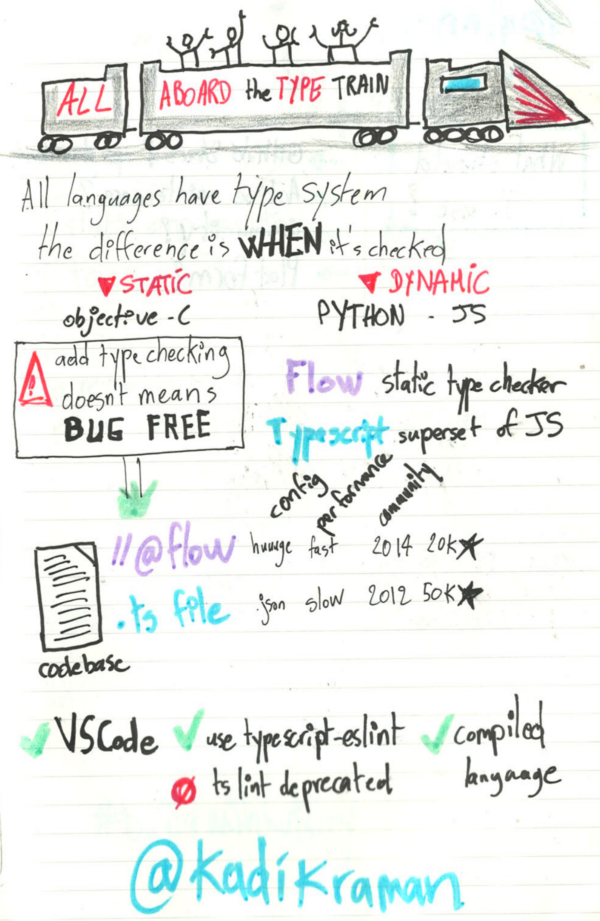 ALL ABOARD the TYPE TRAIN
All languages have type system
the difference is WHEN it's checked
▼ STATIC
objective-C
▼ DYNAMIC
PYTHON - JS
add type checking
doesn't means
BUG FREE
Flow static type checker
Typescript superset of JS
config performance community
//@flow huuuge fast 2014 20K★
.ts file .json slow 2012 50K★
codebase
✓ VSCode
✓ use typescript-eslint
tslint deprecated
✓ compiled
language
@kadikraman